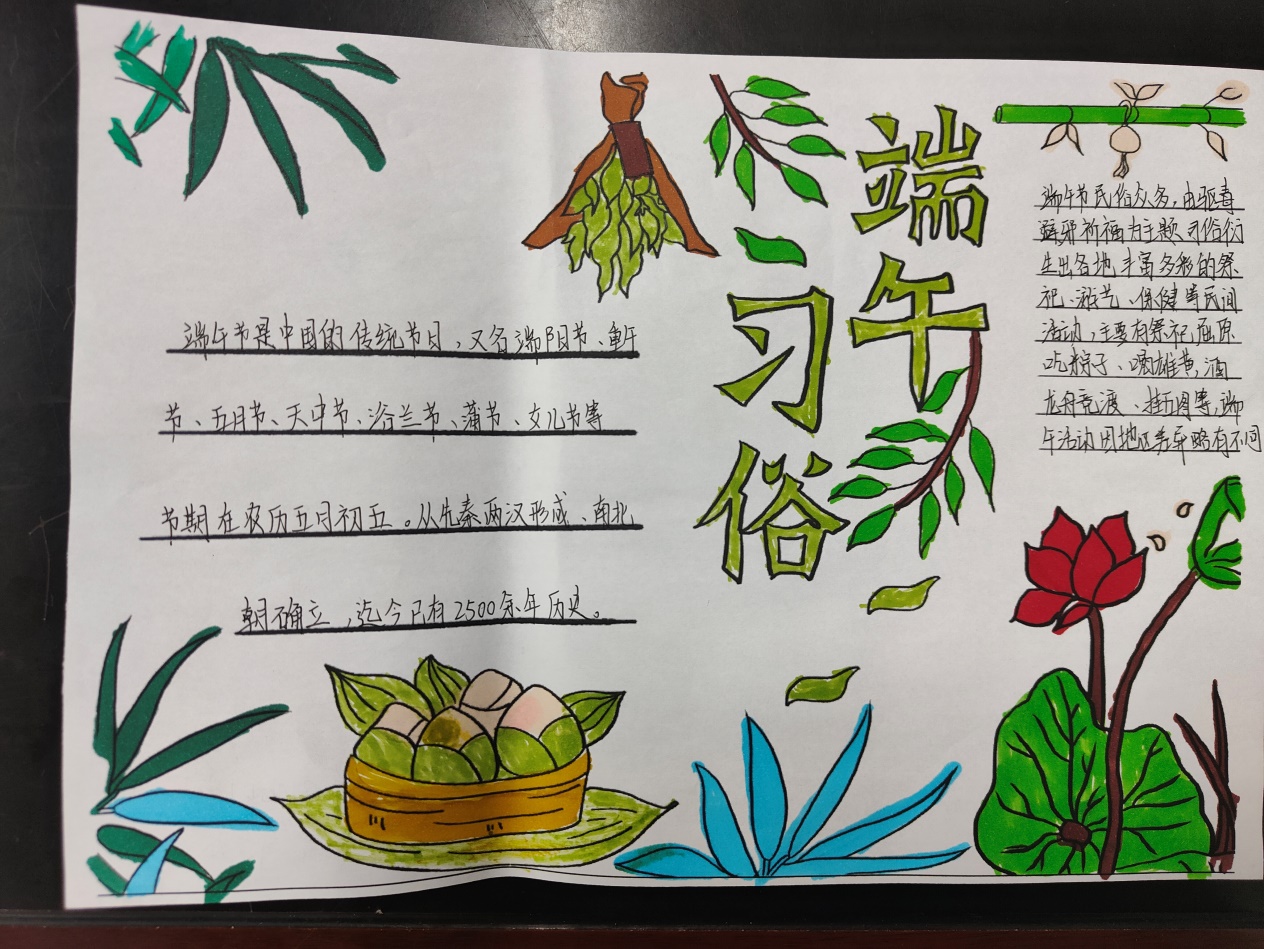 端午习俗
端午节是中国的传统节日，又名端阳节、重午
节、五月节、天中节、浴兰节、蒲节、女儿节等
节期在农历五月初五。从先秦两汉形成、南北
朝确立，迄今已有2500余年历史。
端午节民俗众多，由驱毒
避邪祈福为主题习俗衍
生出各地丰富多彩的祭
祀、游艺、保健等民间
活动，主要有祭祀屈原
吃粽子、喝雄黄酒
龙舟竞渡、挂五图等，端
午活动因地区差异略有不同